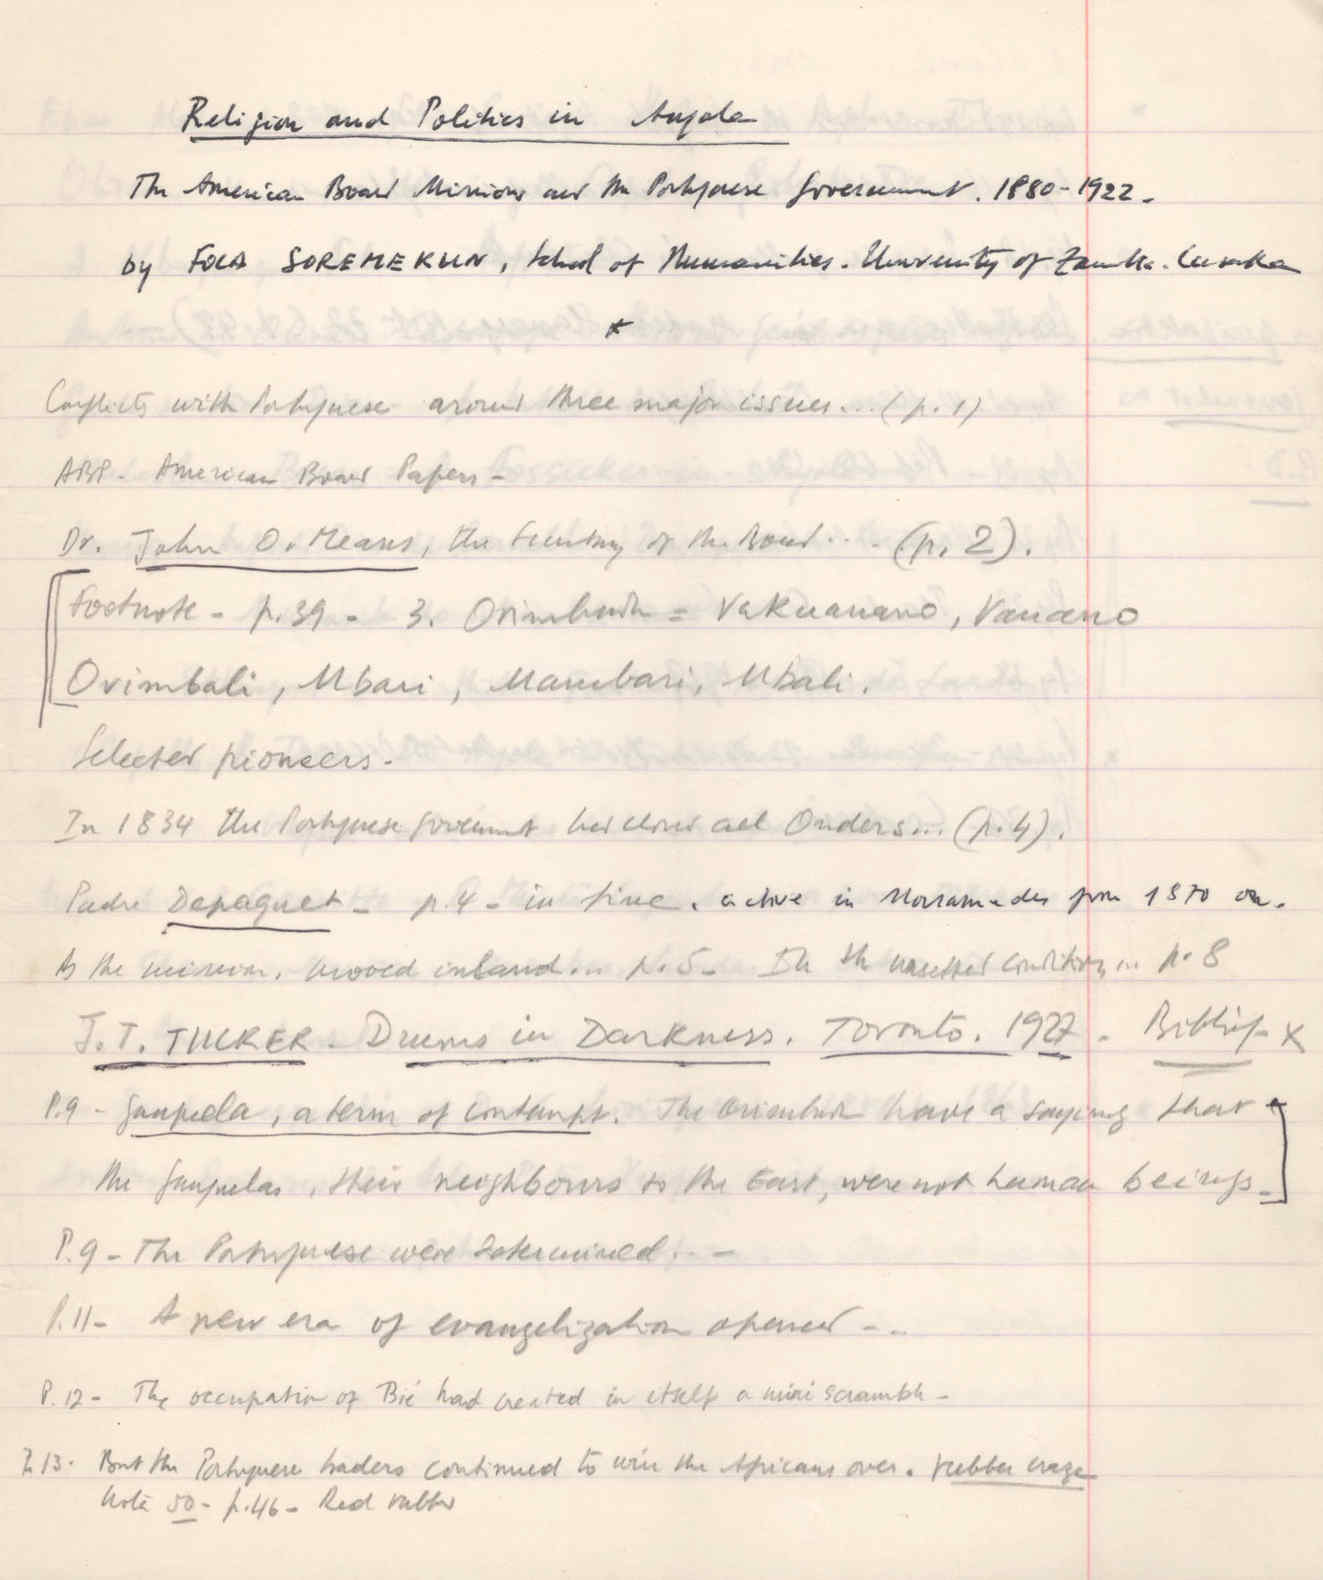 Religion and Politics in Angola
The American Board Missions and the Portuguese Government. 1880-1922.
by FOLA SOREMEKUN, School of Humanities. University of Zambia. Lusaka
*
Conflicts with Portuguese around three major issues... (p. 1)
ABP. American Board Papers-
Dr. John O. Means, the Secretary of the Board... (p. 2).
Footnote - p.39 - 3. Ovimbundu = Vakuanano, Vanano
Ovimbali, Mbari, Mambari, Mbali.
Selected pioneers.
In 1834 the Portuguese Government had closed all Orders... (p. 4).
Padre Depaquet - p.4 - in fine. active in Mossamedes from 1870 on.
As the mission. moved inland... p. 5- In the unsettled condition... p. 8
J.T. TUCKER. Drums in Darkness. Toronto. 1927. Bibliogr. x
P.9 - Ganguela, a term of contempt. The Ovimbundu have a saying that
the Ganguelas, their neighbours to the East, were not human beings.
P.9 - The Portuguese were determined. . -
P.11- A new era of evangelization opened - ..
P. 12 - The occupation of Bié had created in itself a mini scramble -
P. 13. But the Portuguese traders continued to win the Africans over. rubber craze
Note 50 - p.46 - Red rubber